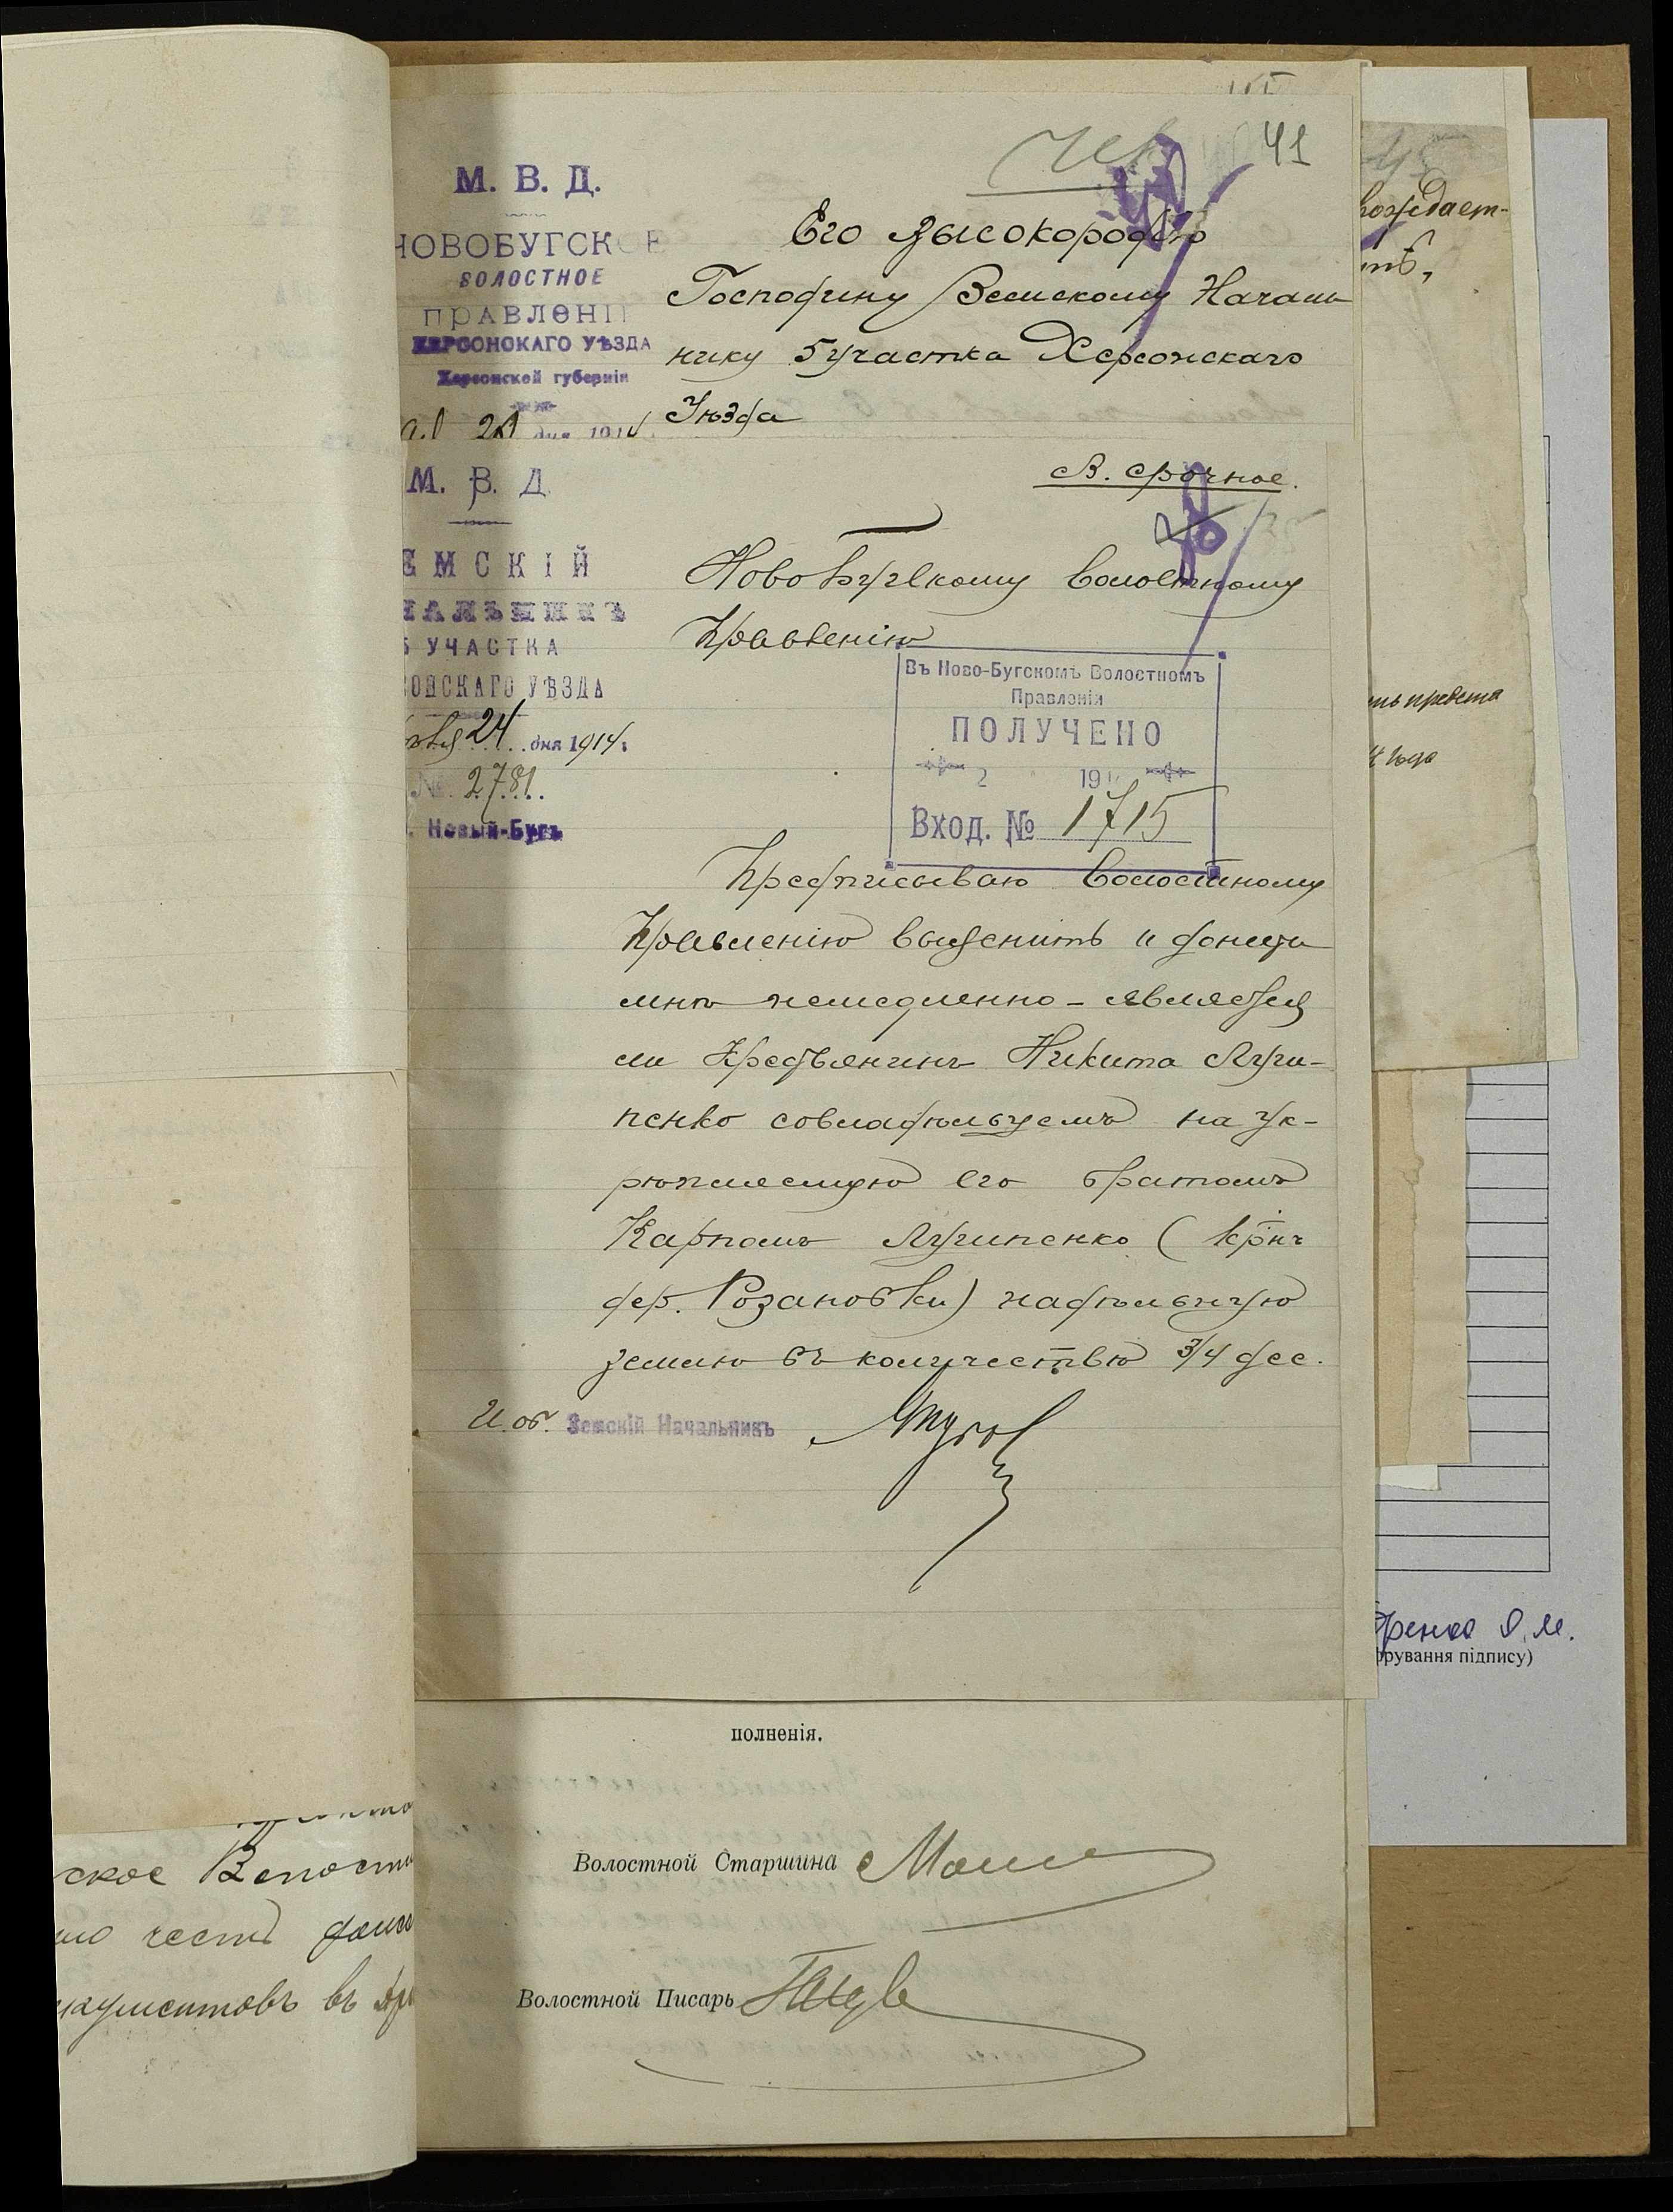 41
М. В. Д.
НОВОБУГСКОЕ
ВОЛОСТНОЕ
ПРАВЛЕНІ
ХЕРСОНСКАГО УѢЗДА
Херсонской губерніи
дня 1914
Его Высокородію
Господину Земскому Началь
нику 5 участка Херсонскаго
Уѣзда
М. В. Д.
ЕМСКІЙ
ЧАЛЬНИКЪ
5 УЧАСТКА
СОНСКАГО УѢЗДА
24 дня 1914 г.
№ 2781.
. Новый-Бугъ
В. срочное.
Ново Бугскому Волостному
Правленію
Въ Ново-Бугскомъ Волостномъ
Правленіи
ПОЛУЧЕНО
2 191
Вход. № 1715
Предписываю Волостному
Правленію выяснить и донести
мнѣ немедленно - является
ли Крестьянинъ Никита Лути-
ненко совладѣльцемъ на ук-
рѣпляемую его братомъ
Карпомъ (крнъ
дер. Розановки) надѣльную
землю въ количествѣ 3/4 дес.
И. об. Земскій Начальникъ
полненія.
Волостной Старшина
Волостной Писарь
ское Волостн
честь доне
кументовъ въ
вождает-
ть предста
ренко О. М.
рування підпису)